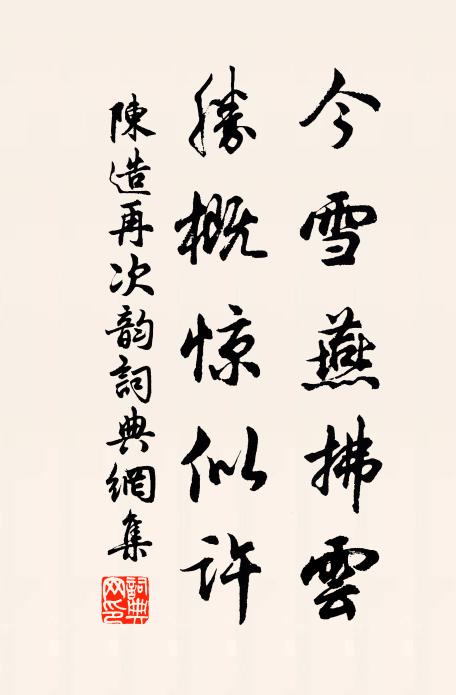 今雪燕拂雲
勝概惊似许
陳造再次韵詞典網集
詞典網印